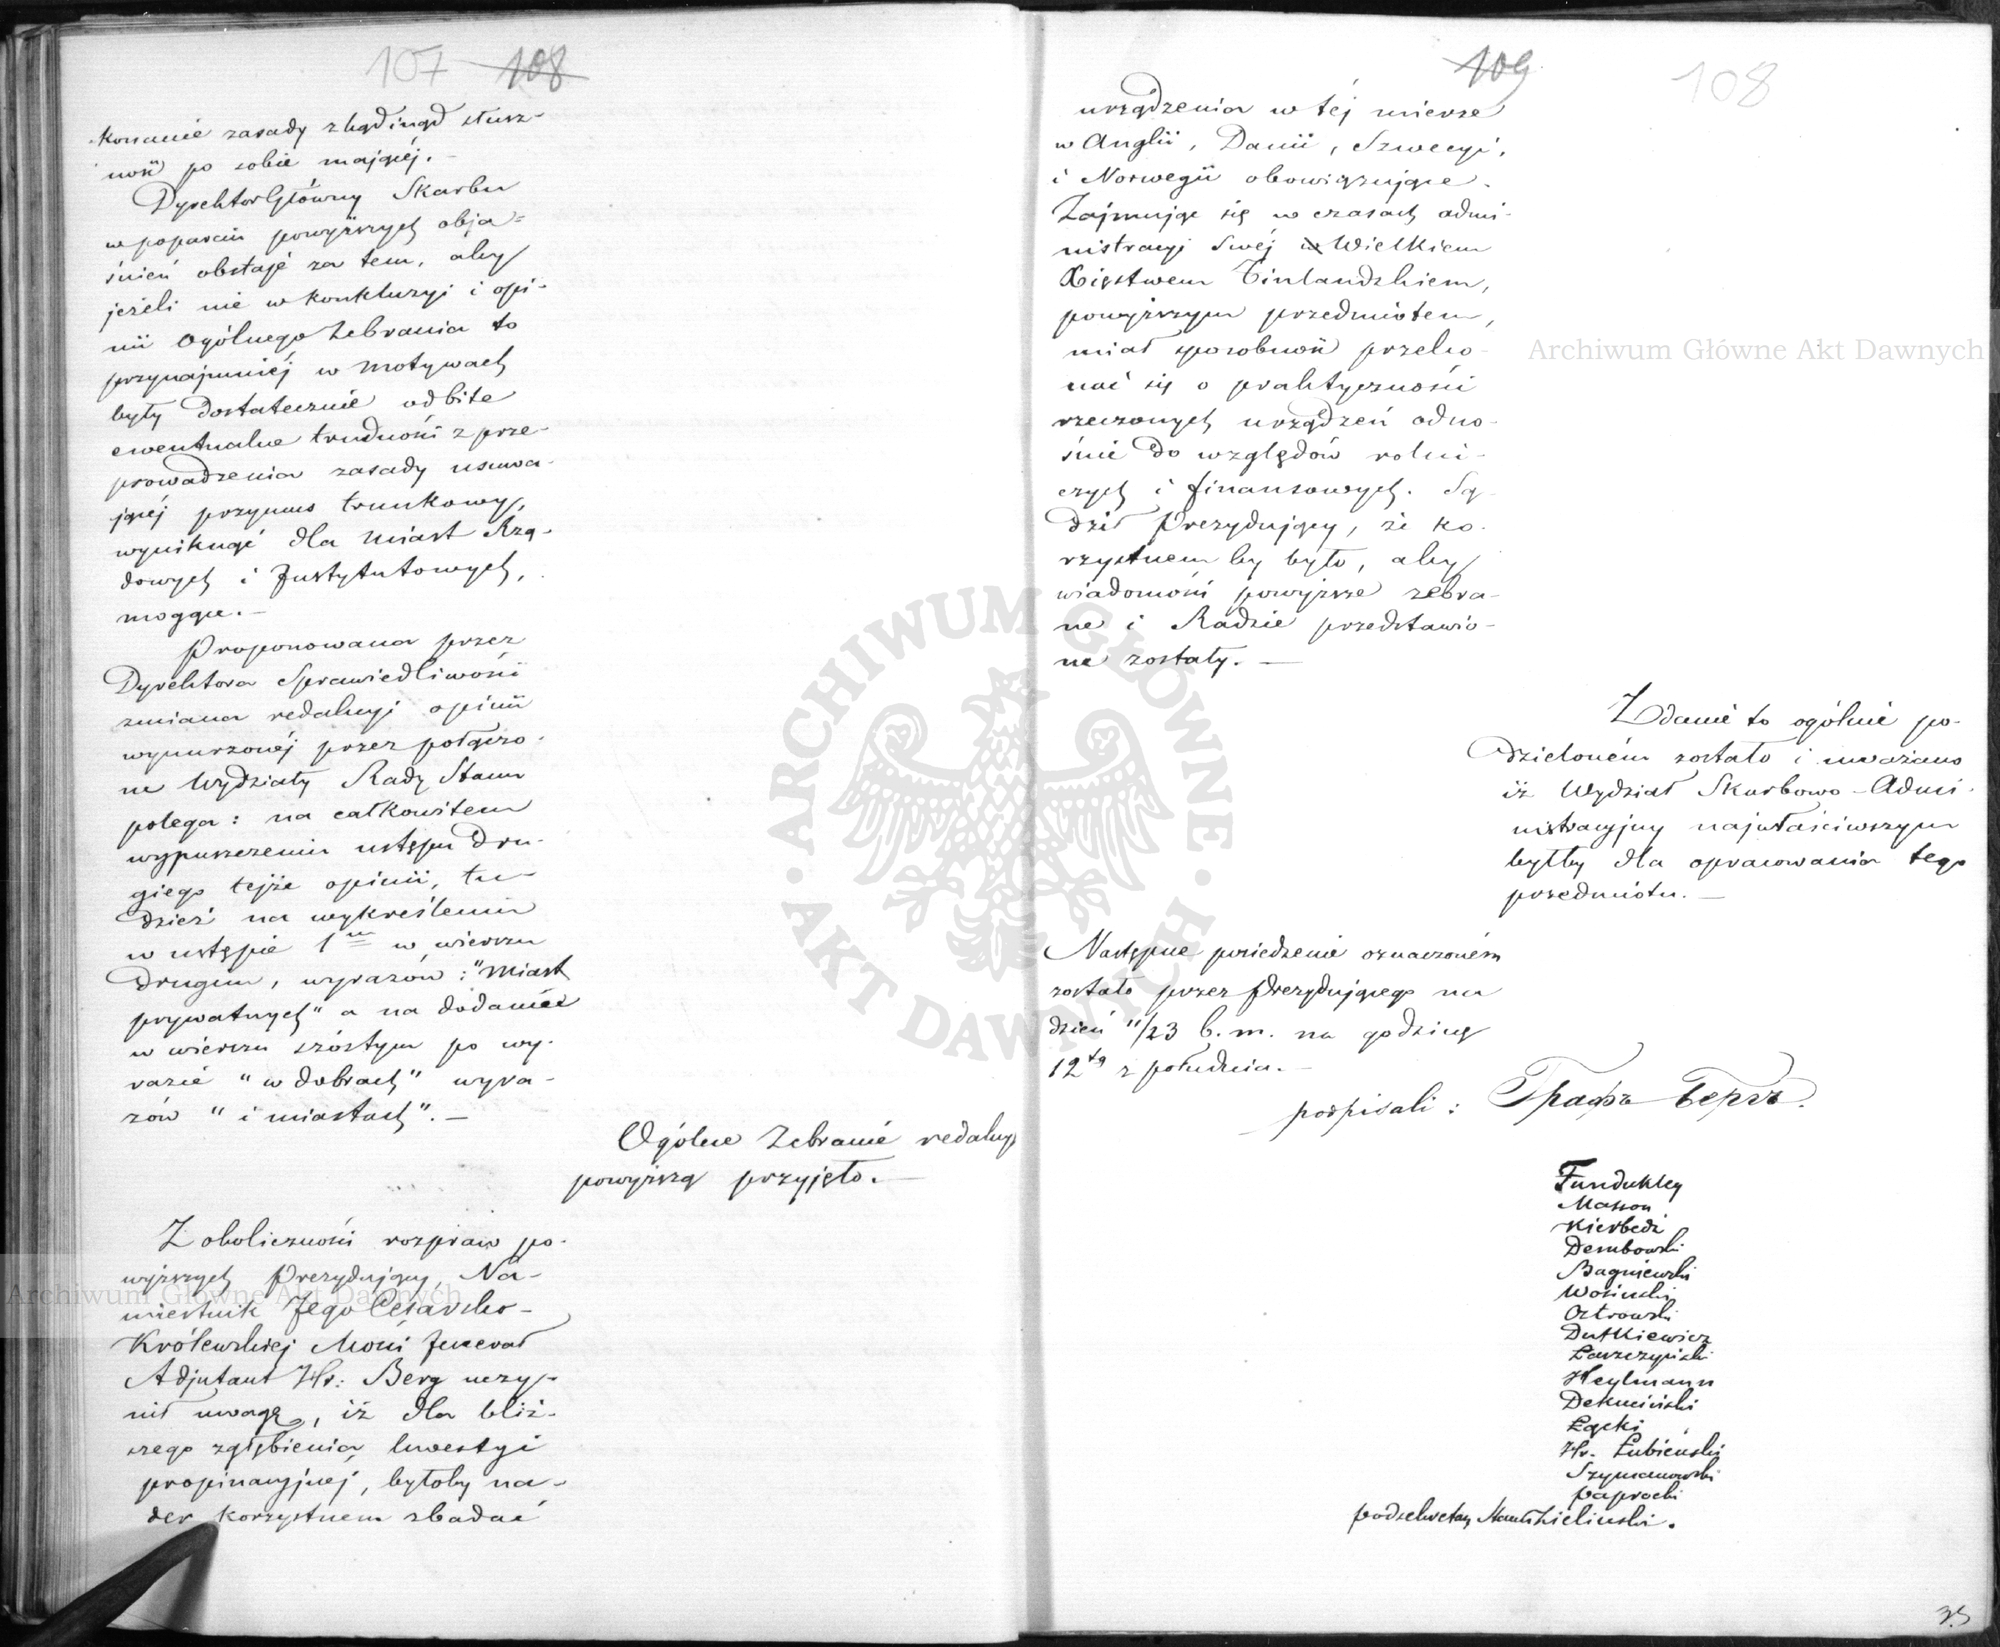 107 108
konanie zasady zkądinąd słusz-
ność po sobie mającéj. —
Dyrektor Główny Skarbu
w poparciu powyższych obja=
śnień obstaje za tem, aby
jeżeli nie w konkluzyi i opi-
nii Ogólnego Zebrania to
przynajmniéj w motywach
były dostatecznie odbite
ewentualne trudności z prze-
prowadzenia zasady usuwa-
jącéj przymus trunkowy,
wyniknąć dla miast Rzą-
dowych i Instytutowych,
mogące. —
Proponowana przez
Dyrektora Sprawiedliwości
zmiana redakcyi opinii
wynurzonéj przez połączo-
ne Wydziały Rady Stanu
polega: na całkowitem
wypuszczeniu ustępu dru-
giego tejże opinii, tu-
dzież na wykreśleniu
w ustępie 1m w wierszu
drugim, wyrazów: "miast
prywatnych" a na dodanie
w wierszu szóstym po wy-
razie "w dobrach" wyra-
zów "i miastach". —
Ogólne Zebranie redakcyę
powyższą przyjęło. —
Z okoliczności rozpraw po-
wyższych Prezydujący, Na-
miestnik Jego Cesarsko-
Królewskiej Mości Jenerał
Adjutant Hr: Berg uczy-
nił uwagę, iż dla bliż-
szego zgłębienia kwestyi
propinacyjnéj, byłoby na-
der korzystnem zbadać
109 108
urządzenia w téj mierze
w Anglii, Danii, Szwecyi,
i Norwegii obowiązujące.
Zajmując się w czasach admi-
nistracyi swéj w Wielkiem
Xięstwem Finlandzkiem,
powyższym przedmiotem,
miał sposobność przeko-
nać się o praktyczności
rzeczonych urządzeń odno-
śnie do względów rolni-
czych i finansowych. Są-
dził Prezydujący, że ko-
rzystnem by było, aby
wiadomości powyższe zebra-
ne i Radzie przedstawio-
ne zostały. —
Zdanie to ogólnie po-
dzieloném zostało i uważano
iż Wydział Skarbowo-Admi-
nistracyjny najwłaściwszym
byłby dla opracowania tego
przedmiotu. —
Następne posiedzenie oznaczoném
zostało przez Prezydującego na
dzień 11/23 b.m. na godzinę
12tą z południa. —
podpisali: Графъ Бергъ.
Fundukley
Masson
Kierbedź
Dembowski
Bagniewski
Wosiński
Ostrowski
Dutkiewicz
Łaszczyński
Heylmann
Dekuciński
Łącki
Hr. Łubieński
Szymanowski
Paprocki
podsekretarz Stanu Zieliński.
35
Archiwum Główne Akt Dawnych
Archiwum Główne Akt Dawnych
ARCHIWUM GŁÓWNE
AKT DAWNYCH